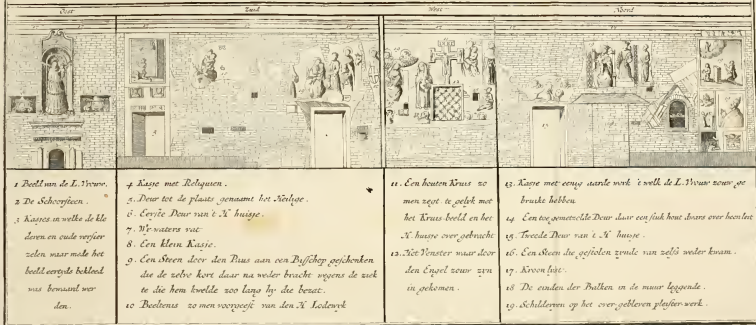 Oost
Zuid
West
Noord
1 Beeld van de L. Vrouw.
2 De Schoorsteen.
3 Kasjes in welke de kle
deren en oude versier
zelen waar mede het
beeld eertyds bekleed
was bewaard wer
den.
4 Kasje met Reliquien.
5. Deur tot de plaats genaamt het Heilige.
6. Eerste Deur van't H huisje.
7. Wy waters vat
8. Een klein Kasje.
9. Een Steen door den Paus aan een Bisschop geschonken
die de zelve kort daar na weder bracht wegens de ziek
te die hem kwelde zoo lang hy die bezat.
10 Beeltenis zo men voorgeeft van den H Lodewyk
11. Een houten Kruis zo
men zegt te gelyk met
het Kruis-beeld en het
H. huisje over gebracht
12. Het Venster waar door
den Engel zouw zyn
in gekomen.
13. Kasje met eenig aarde werk 't welk de L. Vrouw zouw ge
bruikt hebben.
14 Een toegemetzelde Deur daar een stuk hout dwars over heen leit
15. Tweede Deur van 't H. huisje.
16. Een Steen die gestolen zynde van zelfs weder kwam.
17. Kroon lyst.
18 De einden der Balken in de muur leggende.
19. Schilderyen op het over gebleven pleister-werk.